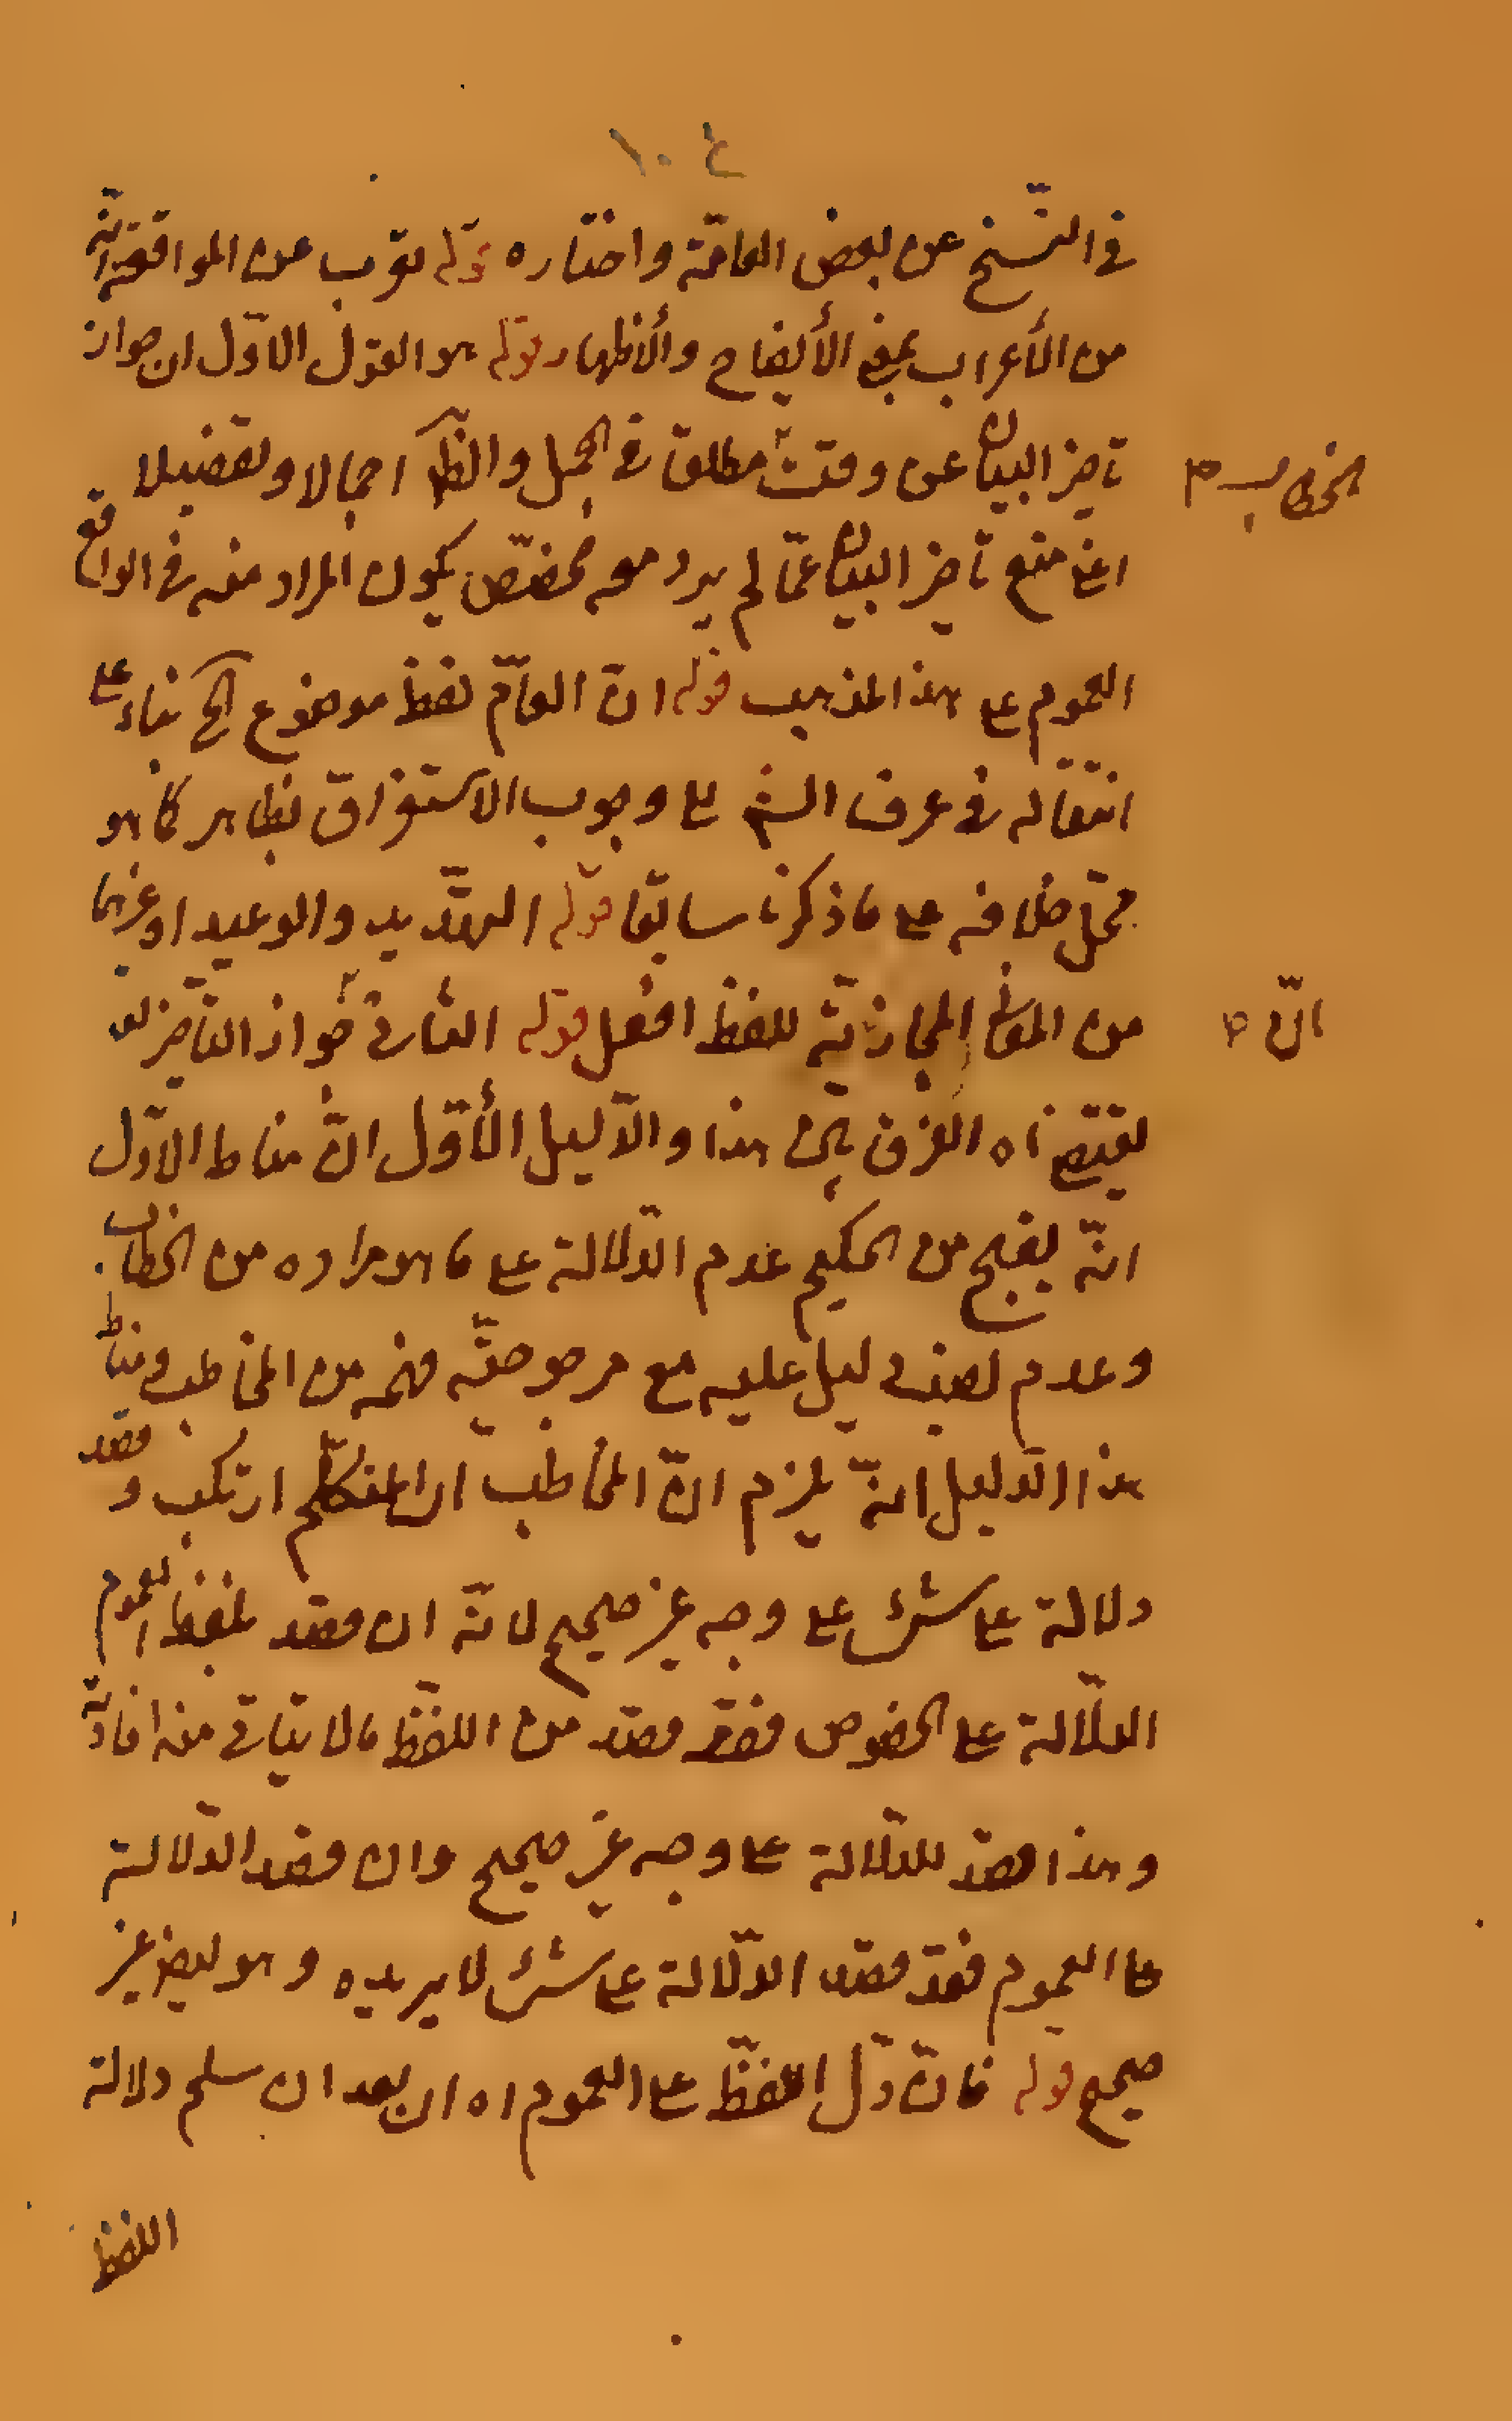 ١٠٤
في النّسخ عن بعض العامّة واختاره قوله يعرب عن الموافقة انّه
من الأعراب بمعنى الأيضاح والأظهار قوله هو القول الاوّل ان جواز
تأخير البيان عن وقت مطلقا في المجمل والظّ اجمالا وتفصيلا
الخطاب م
اعنى منع تأخير البيان عمّا لم يرد معه مخصّص يكون المراد منه في الواقع
العموم على هذا المذهب قوله انّ العامّ لفظ موضوع الخ بناء على
انتقاله في عرف الشرع على وجوب الاستغراق بظاهر كما هو
محلّ خلافه على ما ذكرنا سابقا قوله التهدّيد والوعيد او غيرها
من المعانى المجازيّة للفظ افعل قوله الثانى جواز التأخير
انّ م
يقتضى اه الفرق بين هذا والدّليل الأوّل انّ مناط الاوّل
انّه يقبح من الحكيم عدم الدّلالة على ما هو مراده من الخطاب
وعدم نصب دليل عليه مع مرجوحيّة فهمه من المخاطب ومناط
هذا الدّليل انّه يلزم انّ المخاطب ان المتكلّم ارتكب وقصد
دلالة على شئ على وجه غير صحيح لانّه ان قصد بلفظ العموم
الدّلالة على الخصوص فقد قصد من اللفظ ما لا يتأتى منه افادته
وهذا قصد للدّلالة على وجه غير صحيح وان قصد الدّلالة
على العموم فقد قصد الدّلالة على شئ لا يريده وهو ايض غير
صحيح قوله فانّ دلّ اللفظ على العموم اه ان بعد ان سلم دلالة
اللفظ